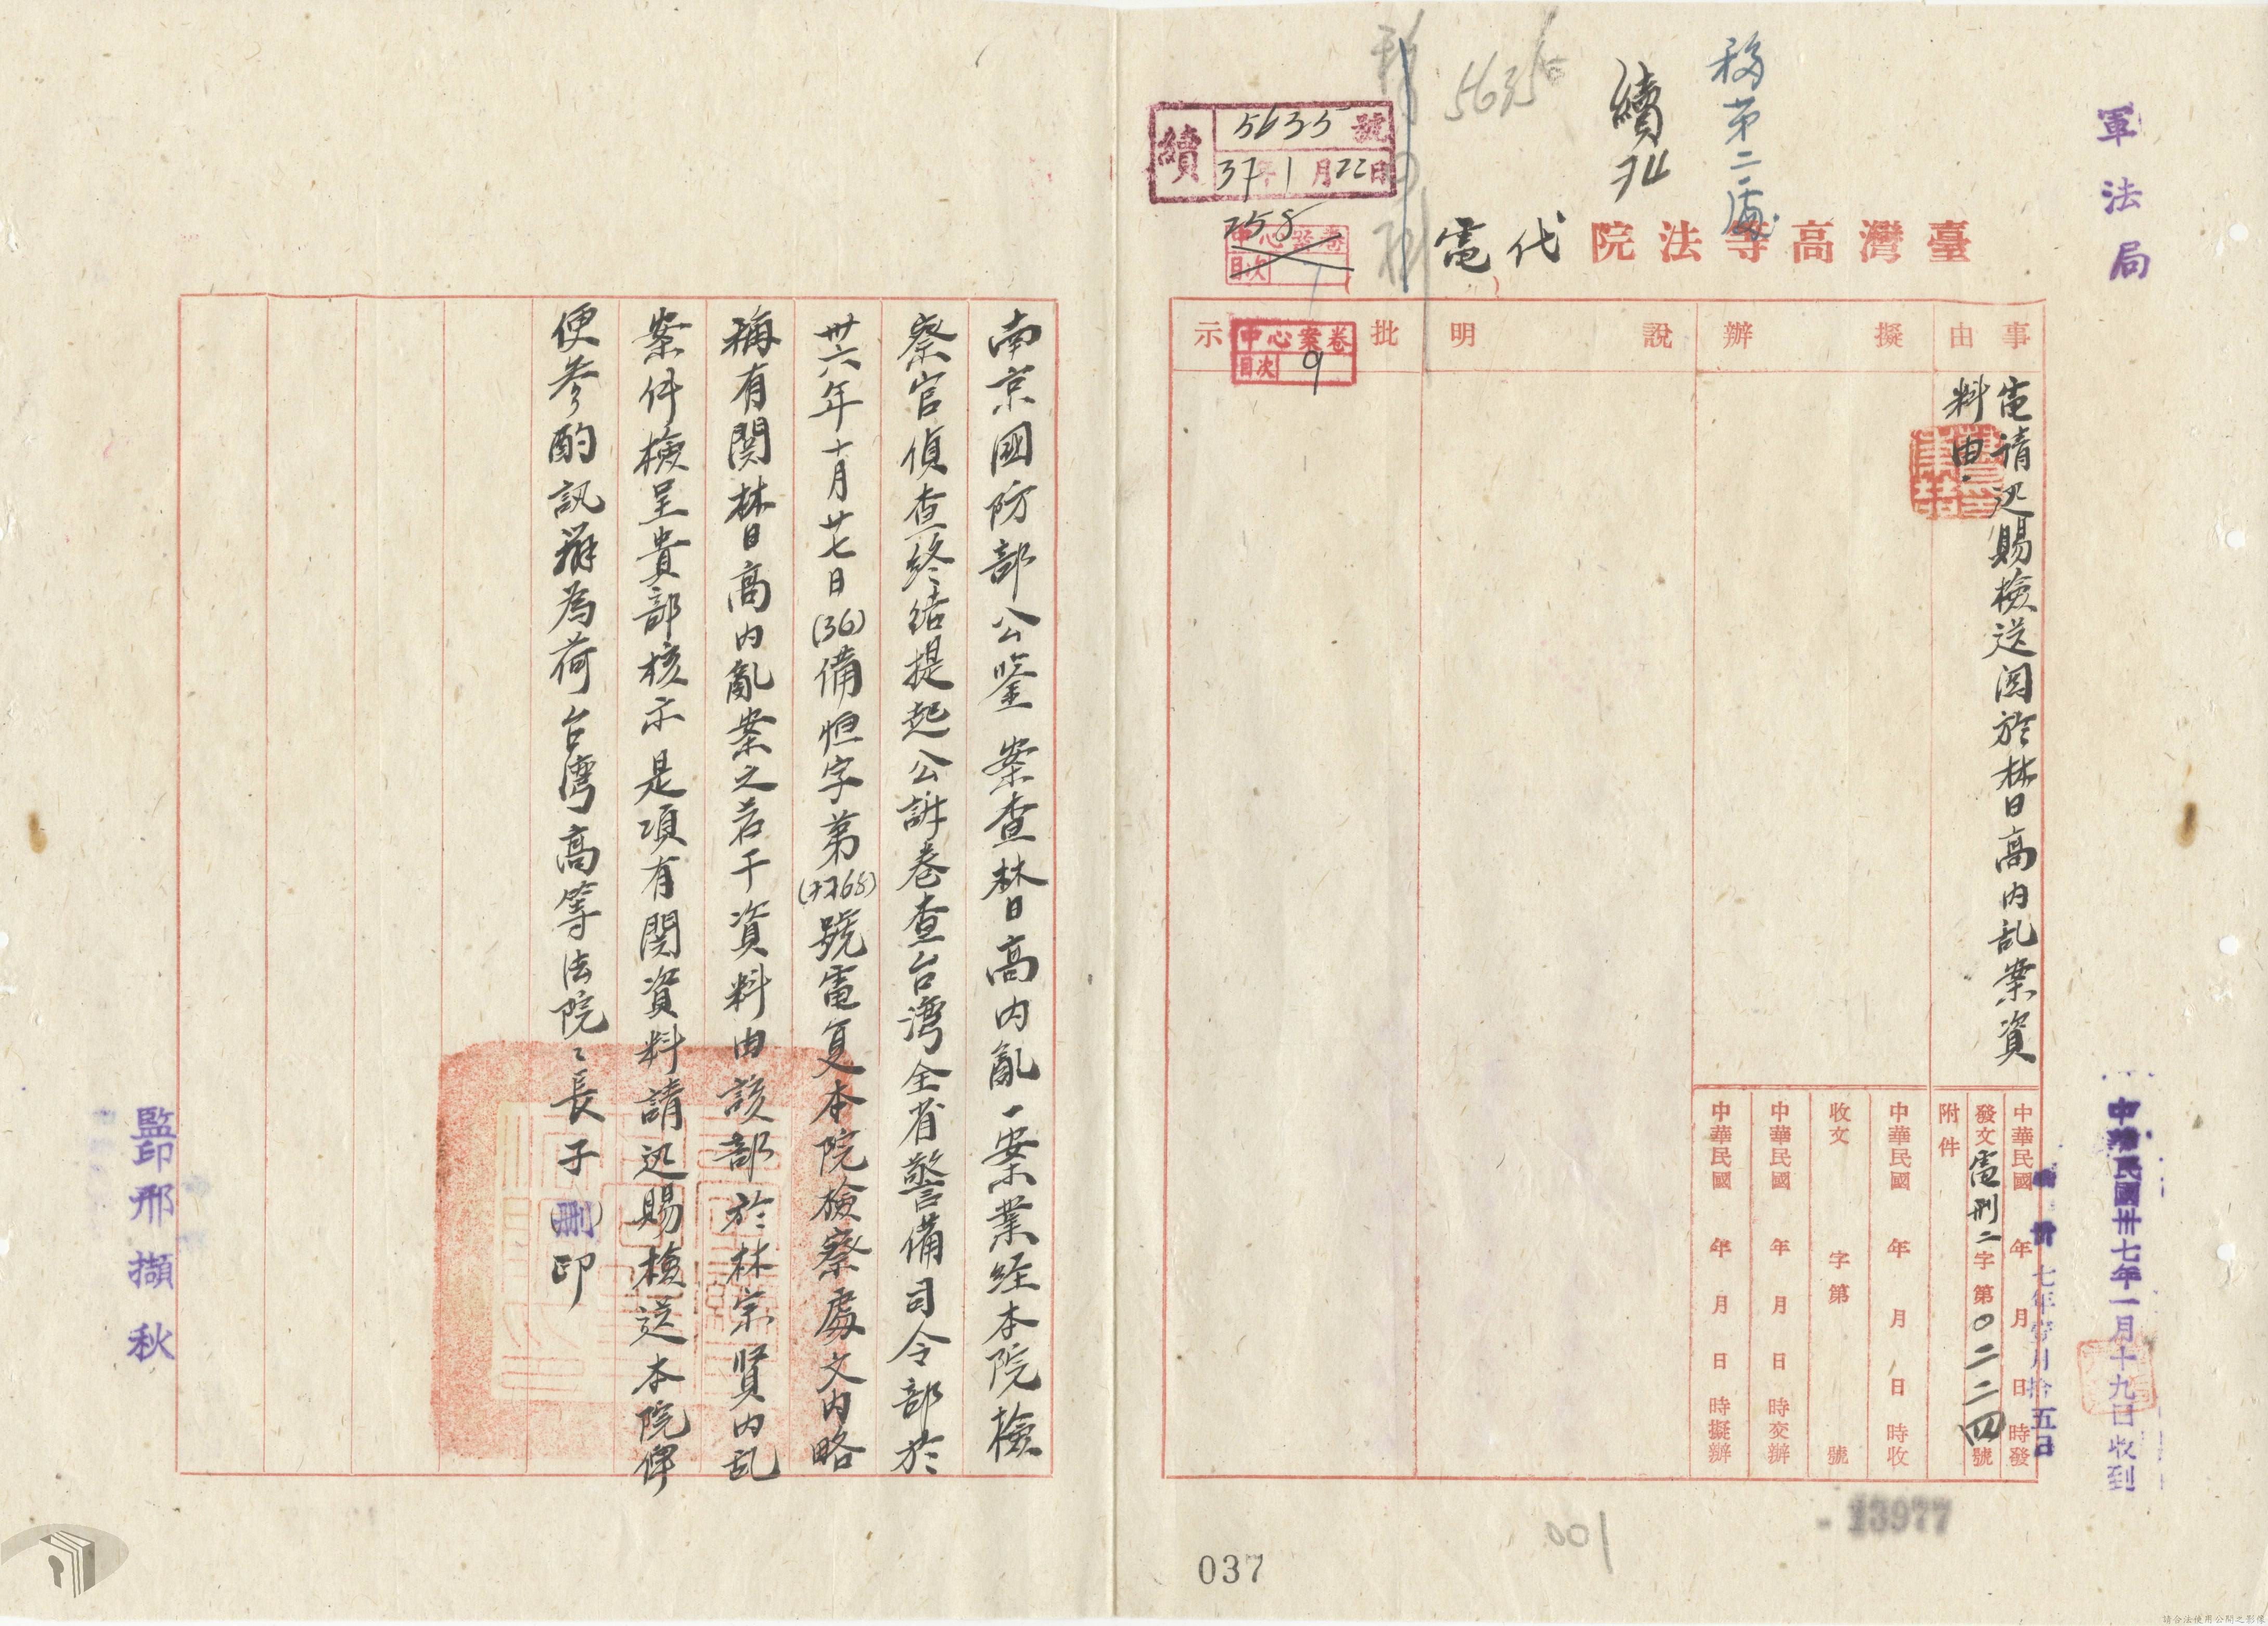 軍法局
移第二處
續
臺灣高等法院代電
5635
續
5635號
37年1月22日
258
中心案卷
目次
中心案卷
目次 9
事由
擬辦
說明
批示
電請迅賜檢送関於林日高內乱案資
料由
中華民國 年 月 日 時發
七年壹月拾五日
發文電刑二字第〇二二四號
附件
中華民國 年 月 日 時收
收文 字第 號
中華民國 年 月 日 時交辦
中華民國 年 月 日 時擬辦
中華民國卅七年一月十九日收到
13977
001
037
南京國防部公鑒 案查林日高內亂一案業経本院檢
察官偵查終結提起公訴卷查台灣全省警備司令部於
卅六年十月廿七日(36)備恒字第(7768)號電复本院檢察處文內略
稱有関林日高內亂案之若干資料由該部於林宗賢內乱
案件檢呈貴部核示是項有関資料請迅賜檢送本院俾
便參酌訊辦為荷台灣高等法院々長子(刪)印
監印邢擷秋
請合法使用公開之影像